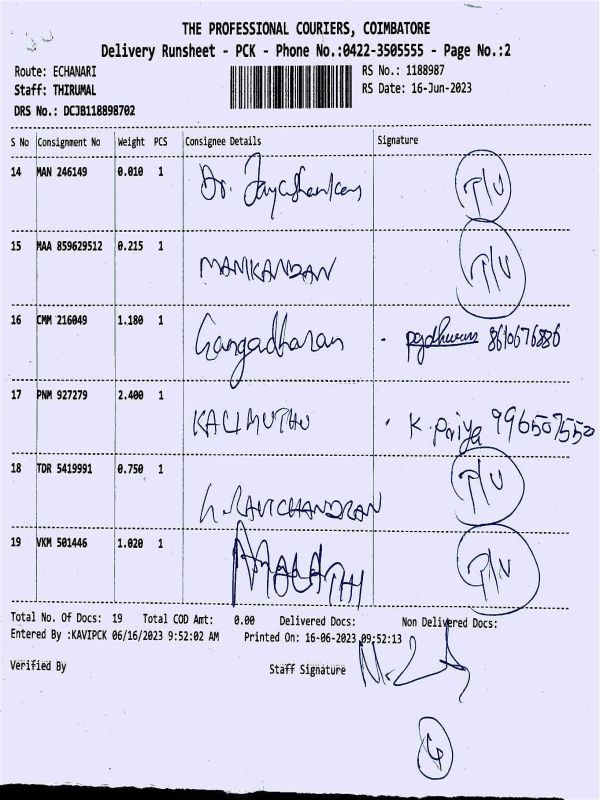 THE PROFESSIONAL COURIERS, COIMBATORE
Delivery Runsheet - PCK - Phone No.:0422-3505555 - Page No.:2
Route: ECHANARI RS No.: 1188987
Staff: THIRUMAL RS Date: 16-Jun-2023
DRS No.: DCJB118898702
S No Consignment No Weight PCS Consignee Details Signature
14 MAN 246149 0.010 1 Dr. Jayashankar
15 MAA 859629512 0.215 1 MANIKANDAN
16 CMM 216049 1.180 1 Gangadharan 8610676886
17 PNM 927279 2.400 1 KALIMUTHU K. Priya 9965075550
18 TDR 5419991 0.750 1 G. RAVICHANDRAN
19 VKM 501446 1.020 1
Total No. Of Docs: 19 Total COD Amt: 0.00 Delivered Docs: Non Delivered Docs:
Entered By :KAVIPCK 06/16/2023 9:52:02 AM Printed On: 16-06-2023 09:52:13
Verified By Staff Signature